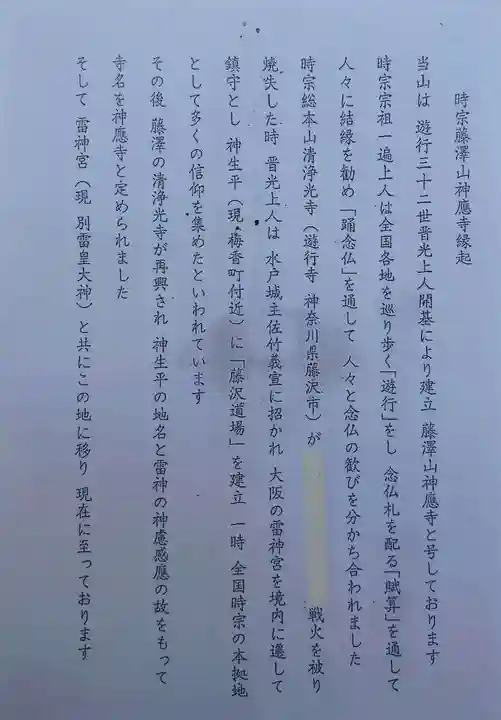 時宗藤澤山神應寺縁起
当山は 遊行三十二世晋光上人開基により建立 藤澤山神應寺と号しております
時宗宗祖一遍上人は全国各地を巡り歩く「遊行」をし 念仏札を配る「賦算」を通して
人々に結縁を勧め「踊念仏」を通して 人々と念仏の歓びを分かち合われました
時宗総本山清浄光寺(遊行寺 神奈川県藤沢市)が 戦火を被り
焼失した時 晋光上人は 水戸城主佐竹義宣に招かれ 大阪の雷神宮を境内に遷して
鎮守とし 神生平(現 梅香町付近)に「藤沢道場」を建立 一時 全国時宗の本拠地
として多くの信仰を集めたといわれています
その後 藤澤の清浄光寺が再興され 神生平の地名と雷神の神慮感應の故をもって
寺名を神應寺と定められました
そして 雷神宮(現 別雷皇大神)と共にこの地に移り 現在に至っております